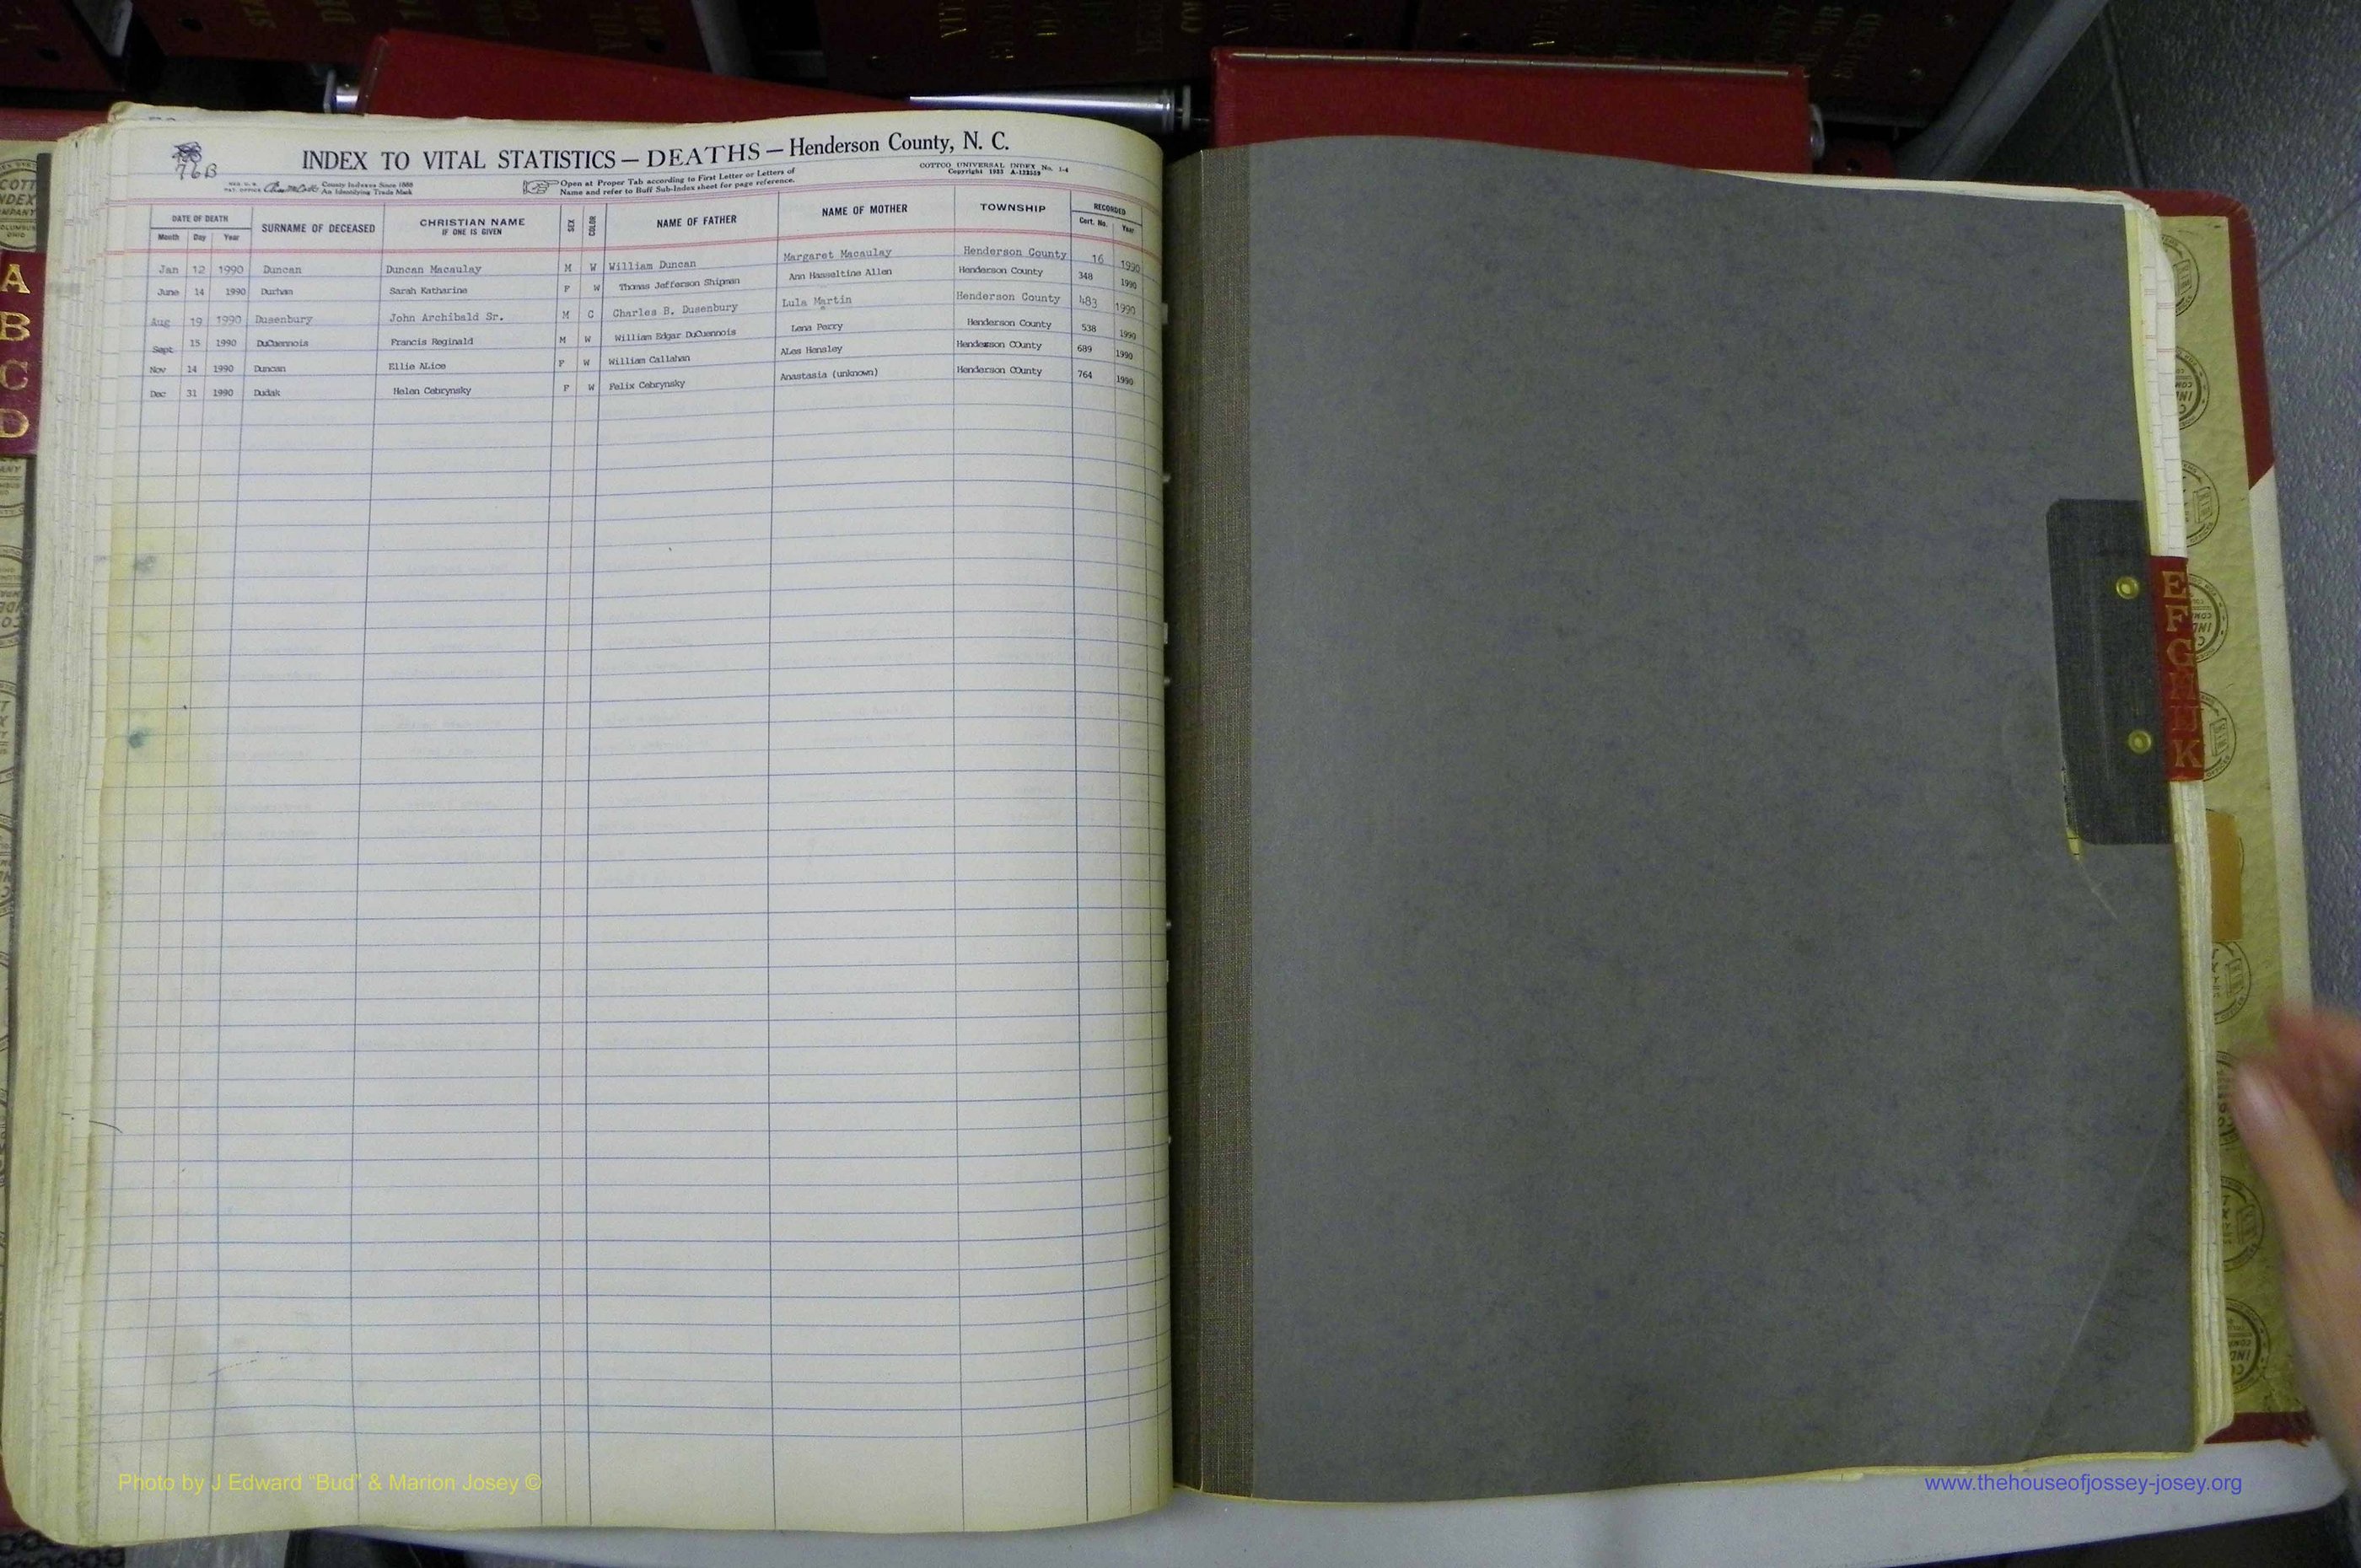 76B
INDEX TO VITAL STATISTICS — DEATHS — Henderson County, N. C.
REG. U. S. PAT. OFFICE County Indexes Since 1888 An Identifying Trade Mark
Open at Proper Tab according to First Letter or Letters of
Name and refer to Buff Sub-Index sheet for page reference.
COTTCO UNIVERSAL INDEX No. 1-4
Copyright 1933
DATE OF DEATH SURNAME OF DECEASED CHRISTIAN NAME IF ONE IS GIVEN SEX COLOR NAME OF FATHER NAME OF MOTHER TOWNSHIP RECORDED
Month Day Year Cert. No. Year
Jan 12 1990 Duncan Duncan Macaulay M W William Duncan Margaret Macaulay Henderson County 16 1990
June 14 1990 Durham Sarah Katharine F W Thomas Jefferson Shipman Ann Hasseltine Allen Henderson County 348 1990
Aug 19 1990 Dusenbury John Archibald Sr. M C Charles B. Dusenbury Lula Martin Henderson County 483 1990
Sept 15 1990 DuCuennois Francis Reginald M W William Edgar DuCuennois Lena Perry Henderson County 538 1990
Nov 14 1990 Duncan Ellie ALice F W William Callahan ALes Hensley Henderson COunty 689 1990
Dec 31 1990 Dudak Helen Cebrynsky F W Felix Cebrynsky Anastasia (unknown) Henderson COunty 764 1990
A
B
C
D
E
F
G
K
Photo by J Edward “Bud” & Marion Josey ©
www.thehouseofjossey-josey.org